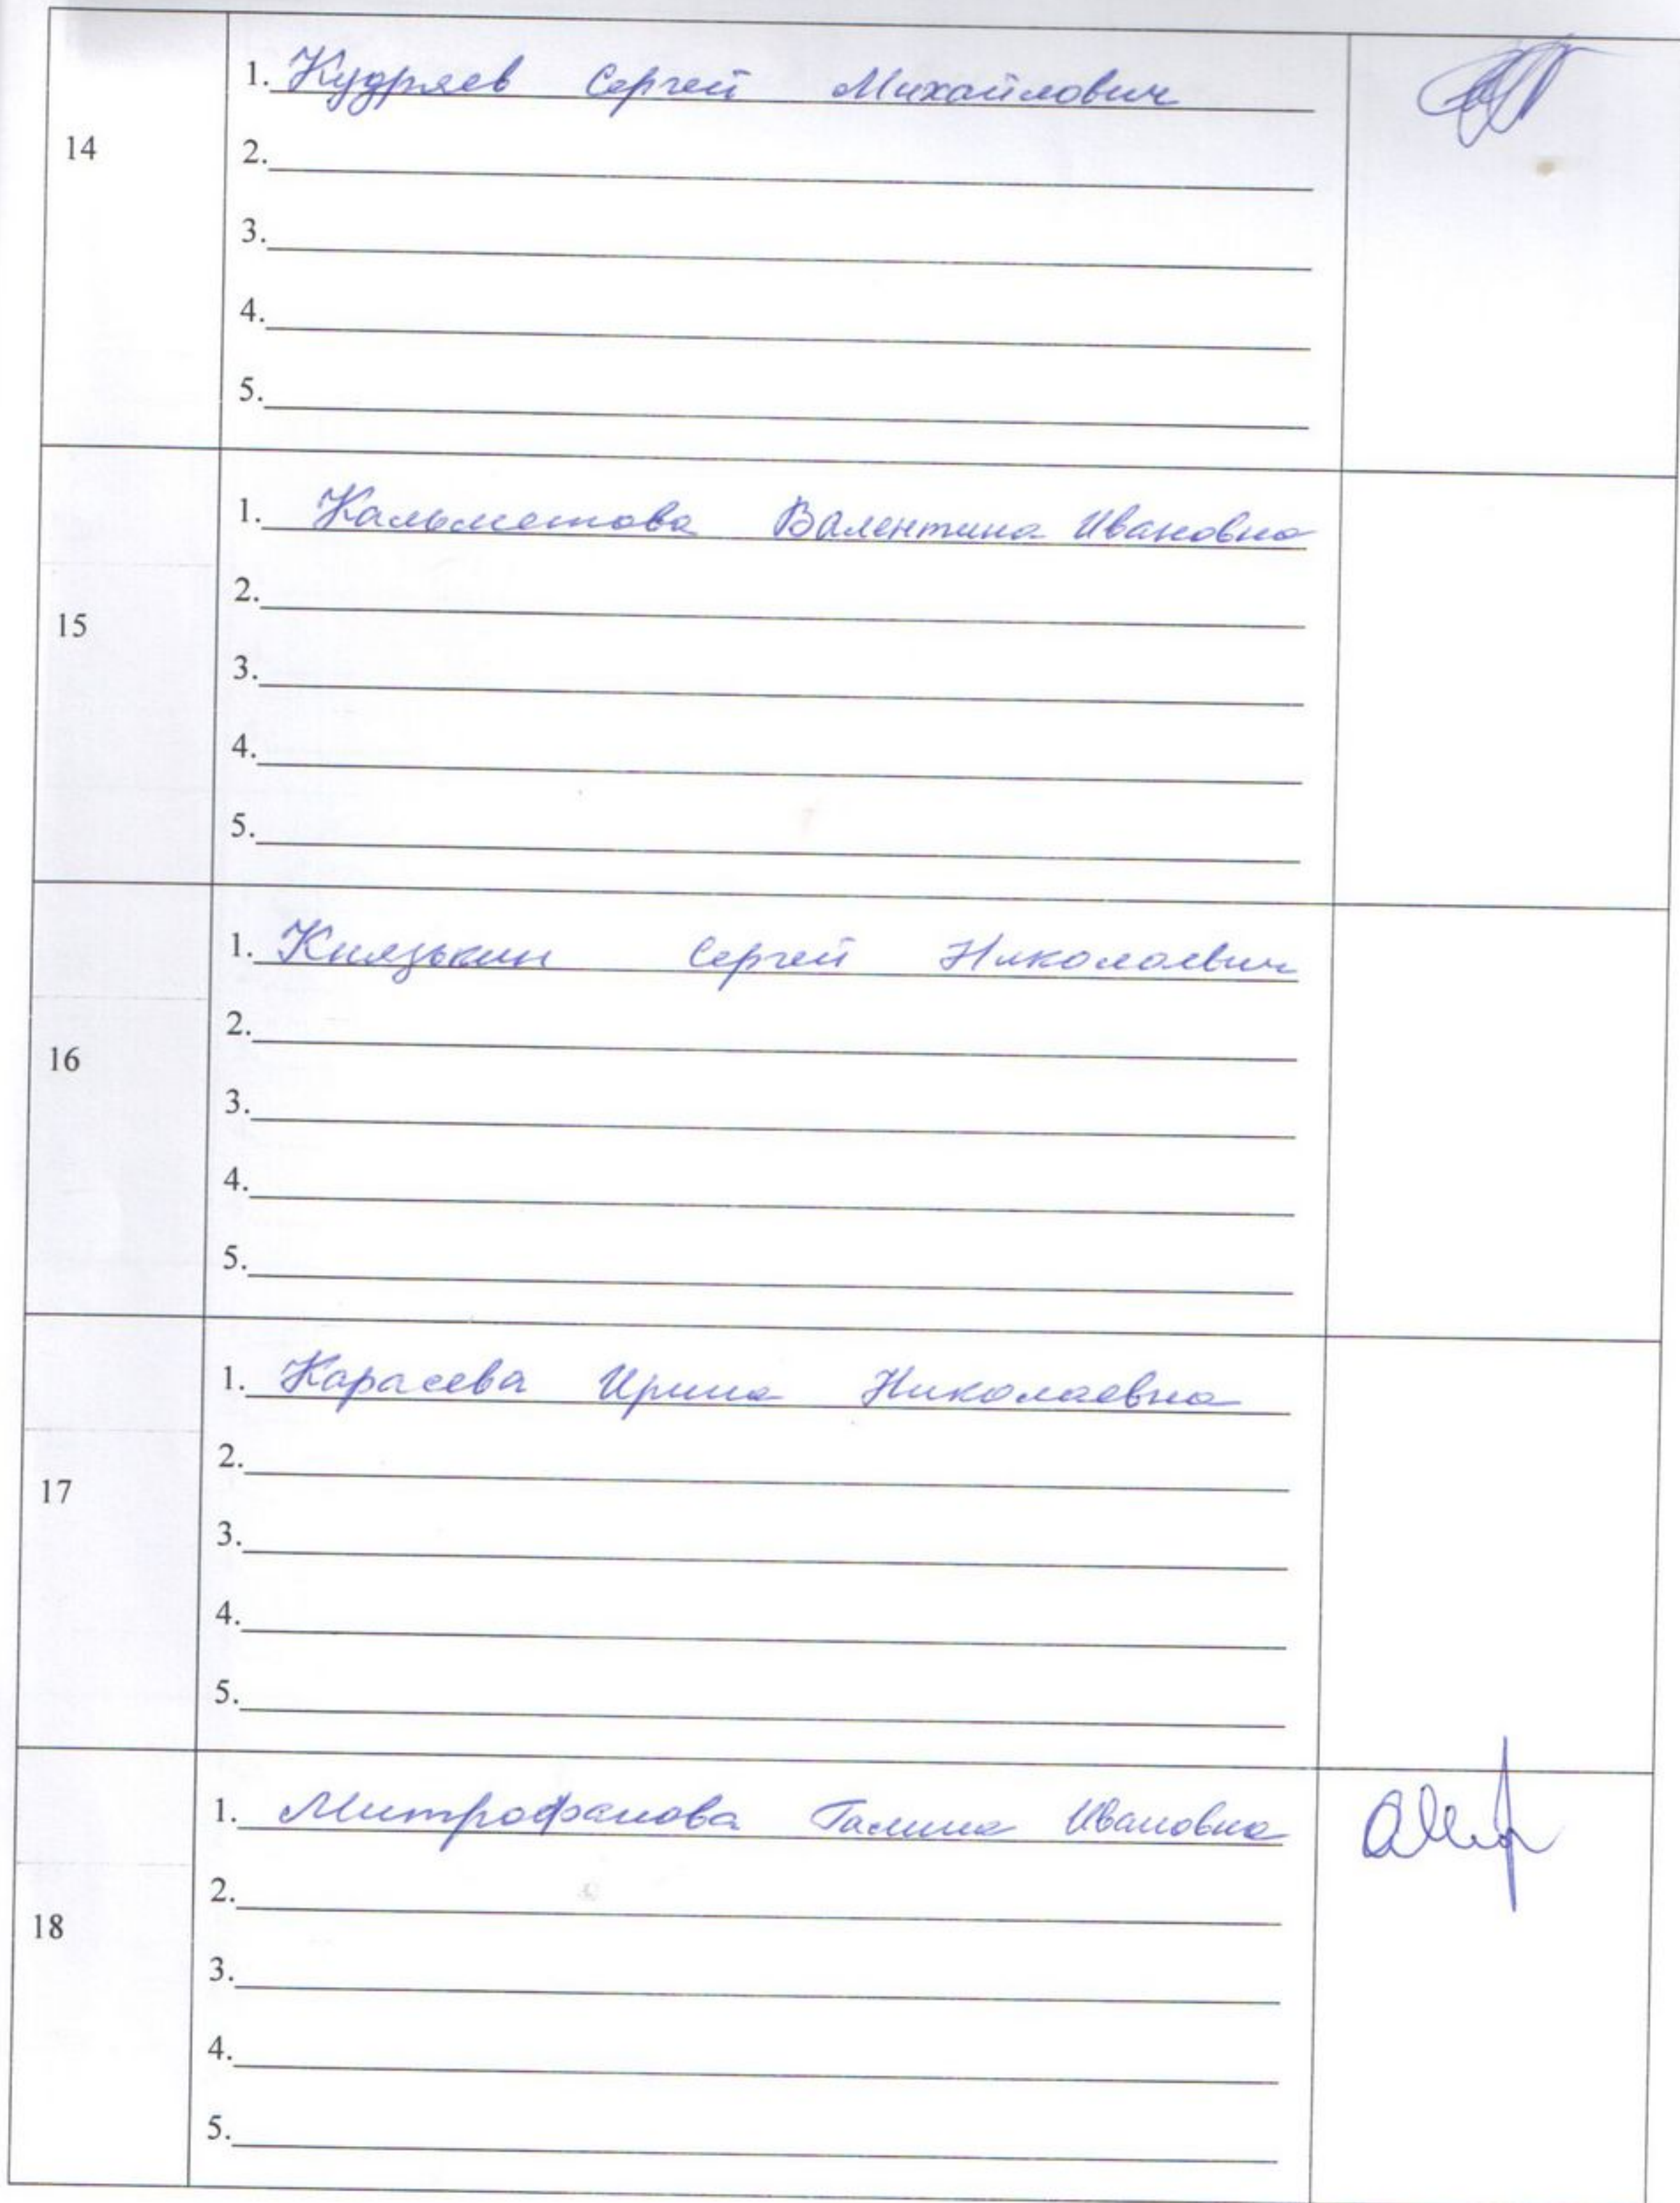 14
1. Кудряев Сергей Михайлович
2.
3.
4.
5.
15
1. Кальметова Валентина Ивановна
2.
3.
4.
5.
16
1. Князькин Сергей Николаевич
2.
3.
4.
5.
17
1. Карасева Ирина Николаевна
2.
3.
4.
5.
18
1. Митрофанова Галина Ивановна
2.
3.
4.
5.